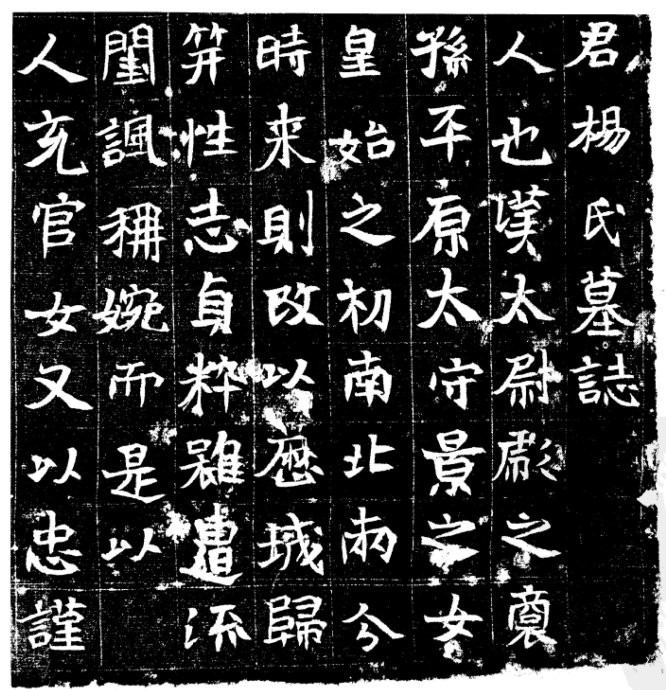 君楊氏墓誌
人也漢太尉彪之裔
孫平原太守景之女
皇始之初南北兩分
時来則改以歷城歸
笄性志貞粹雖遭流
閨諷稱婉而是以
人充官女又以忠謹